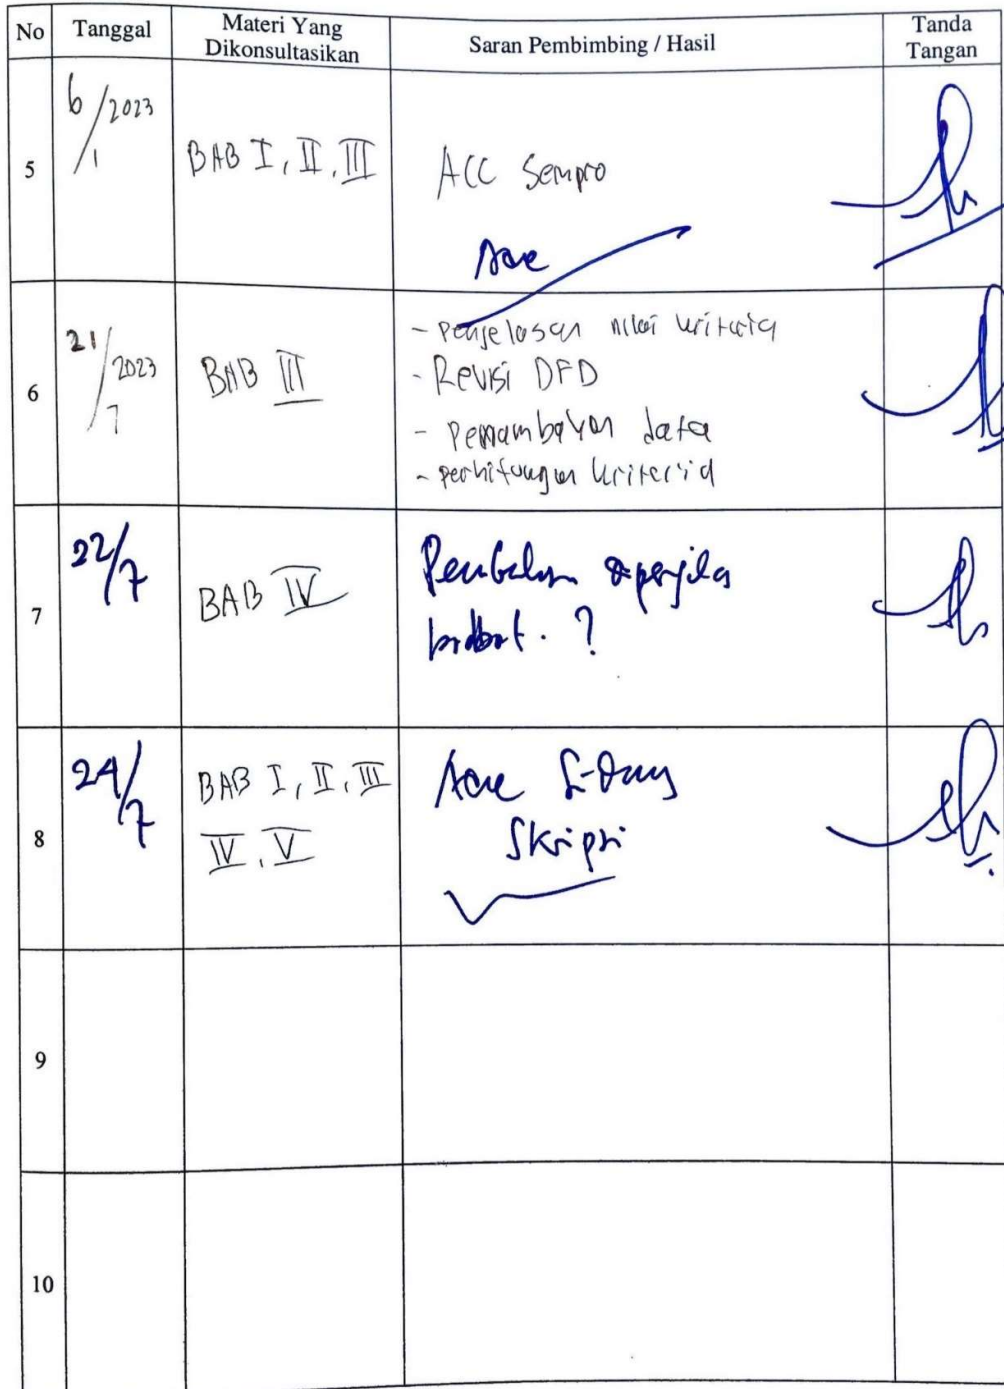 No Tanggal Materi Yang Dikonsultasikan Saran Pembimbing / Hasil Tanda Tangan
5 6/1 2023 BAB I, II, III ACC Sempro
Acc
6 21/7 2023 BAB III - Penjelasan nilai kriteria
- Revisi DFD
- Penambahan data
- perhitungan kriteria
7 22/7 BAB IV
?
8 24/7 BAB I, II, III
IV, V
Acc
Skripsi
9
10